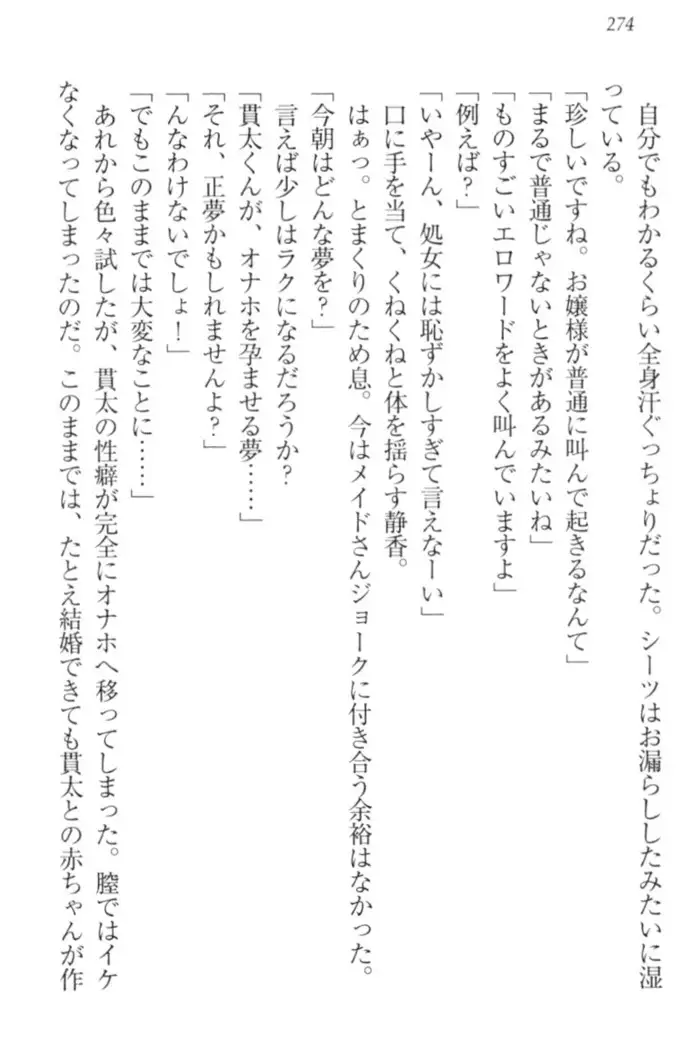 274
自分でもわかるくらい全身汗ぐっちょりだった。シーツはお漏らししたみたいに湿
っている。
「珍しいですね。お嬢様が普通に叫んで起きるなんて」
「まるで普通じゃないときがあるみたいね」
「ものすごいエロワードをよく叫んでいますよ」
「例えば？」
「いやーん、処女には恥ずかしすぎて言えなーい」
口に手を当て、くねくねと体を揺らす静香。
はぁっ。とまくりのため息。今はメイドさんジョークに付き合う余裕はなかった。
「今朝はどんな夢を？」
言えば少しはラクになるだろうか？
「貫太くんが、オナホを孕ませる夢……」
「それ、正夢かもしれませんよ？」
「んなわけないでしょ！」
「でもこのままでは大変なことに……」
あれから色々試したが、貫太の性癖が完全にオナホへ移ってしまった。膣ではイケ
なくなってしまったのだ。このままでは、たとえ結婚できても貫太との赤ちゃんが作